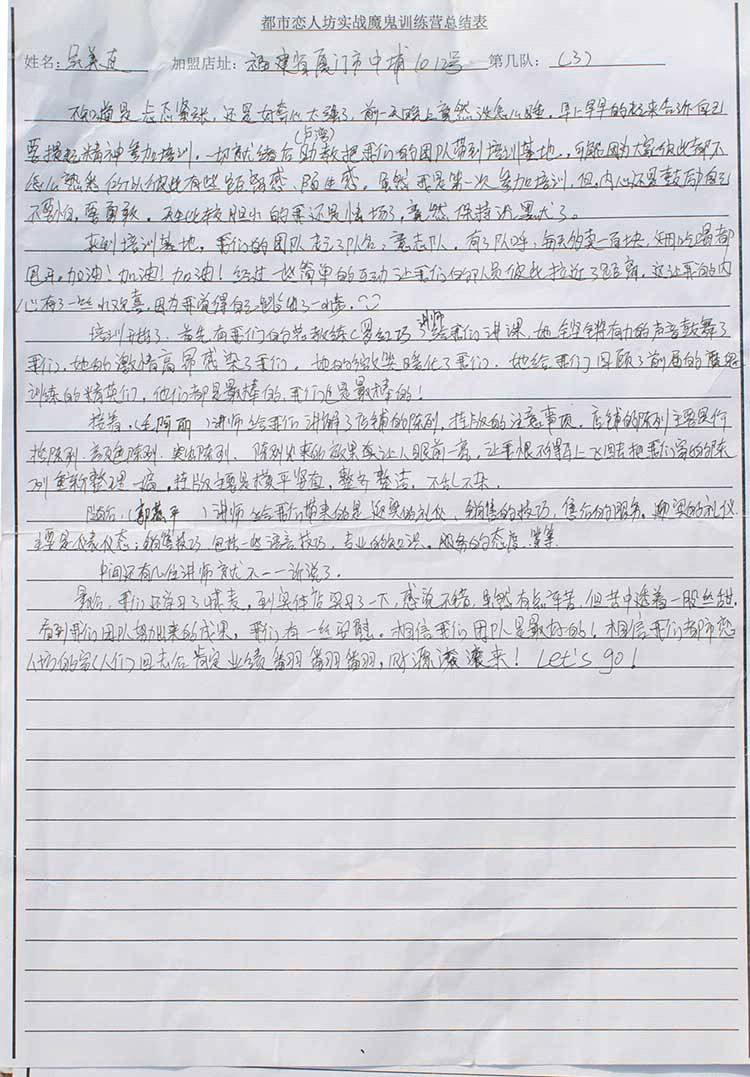 都市恋人坊实战魔鬼训练营总结表
姓名: 吴美 加盟店址: 福建省厦门市中埔1012号 第几队: (3)
不知道是忐忑紧张,还是好奇心太强了,前一天晚上竟然没怎么睡,早上早早的起来告诉自己
要提起精神参加培训,一切就绪后助教把我们的团队带到培训基地,可能因为大家彼此都不
怎么熟悉所以彼此有些距离感,陌生感,虽然我是第一次参加培训,但内心还是鼓励自己
不要怕,要勇敢,在此较胆小的我还是怯场了,竟然保持沉默了。
来到培训基地,我们的团队有了队名,意志队,有了队呼,每天的卖一百块,
甩开,加油!加油!加油!经过一些简单的互动让我们的队员彼此拉近了距离,这让我的内
心有了一丝小欢喜,因为我觉得自己跨出了一小步。
培训开始了,首先有我们的总教练(罗红巧)讲师给我们讲课,她铿锵有力的声音鼓舞了
我们,她的激情高昂感染了我们,她的微笑暖化了我们,她给我们回顾了前届的魔鬼
训练的精英们,他们都是最棒的,我们也是最棒的!
接着,(阿丽)讲师给我们讲解了店铺的陈列,挂版的注意事项,店铺的陈列主要是行
陈列,色陈列,类陈列,陈列出来的效果要让人眼前一亮,让我恨不得马上飞回去把我们店的陈
列重新整理一遍,挂版主要是横平竖直,整齐整洁,不乱不杂。
随后,(郭慧平)讲师给我们带来的是迎宾的礼仪,销售的技巧,售后的服务,迎宾的礼仪
主要是仪表仪态;销售技巧包括一些语言技巧,专业的知识,服务的态度等等
中间还有几位讲师就不一一诉说了。
最后,我们还学习了填表,到实体店实习了一下,感觉不错,虽然有点辛苦,但苦中透着一股丝甜,
看到我们团队努力出来的成果,我们有一丝安慰,相信我们团队是最好的!相信我们都市恋
人坊的家人们回去后肯定业绩翻翻翻,财源滚滚来! Let's go!